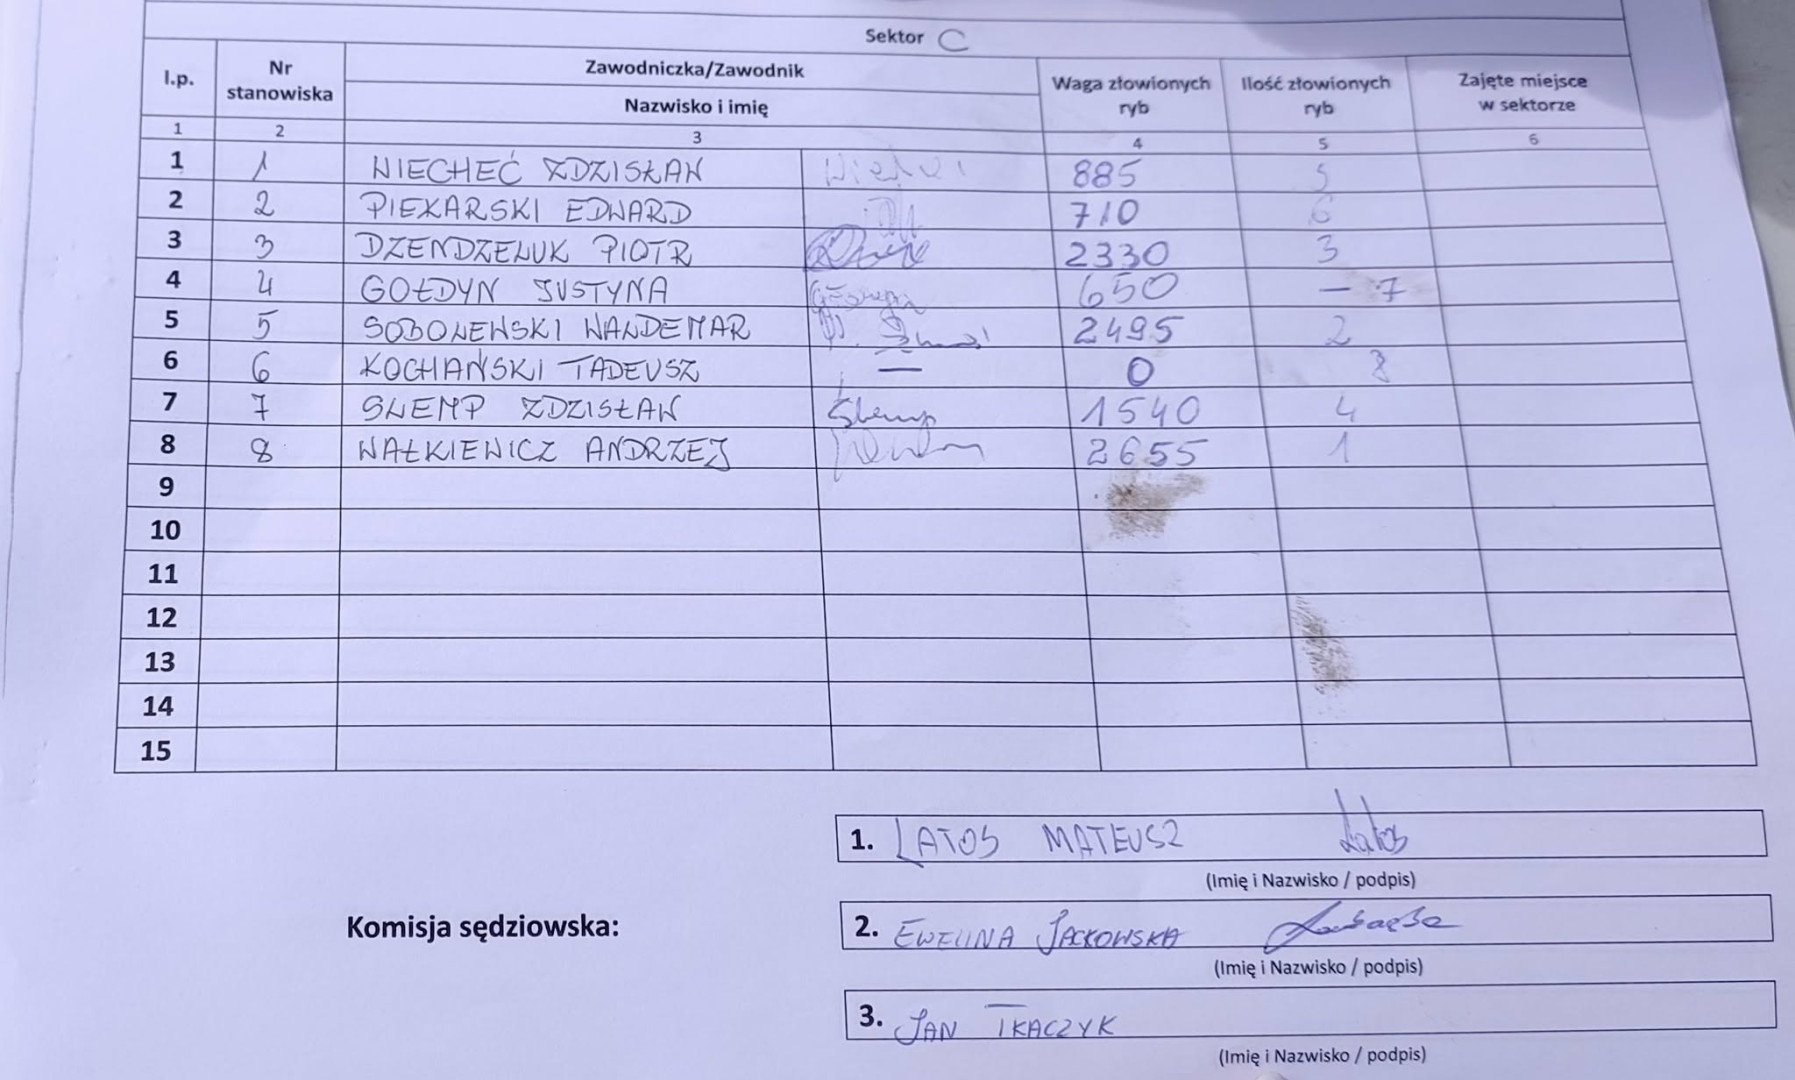 Sektor C
l.p. Nr stanowiska Zawodniczka/Zawodnik Nazwisko i imię Waga złowionych ryb Ilość złowionych ryb Zajęte miejsce w sektorze
1 2 3 4 5 6
1 1 NIECHEĆ ZDZISŁAW 885 5
2 2 PIEKARSKI EDWARD 710 6
3 3 DZENDZELUK PIOTR 2330 3
4 4 GOŁDYN JUSTYNA 650 – 7
5 5 SOBOLEWSKI WALDEMAR 2495 2
6 6 KOCHAŃSKI TADEUSZ — 0 8
7 7 SLEMP ZDZISŁAW Slemp 1540 4
8 8 WAŁKIEWICZ ANDRZEJ 2655 1
9
10
11
12
13
14
15
Komisja sędziowska:
1. LATOS MATEUSZ Latos
(Imię i Nazwisko / podpis)
2. EWELINA JACKOWSKA
(Imię i Nazwisko / podpis)
3. JAN TKACZYK
(Imię i Nazwisko / podpis)